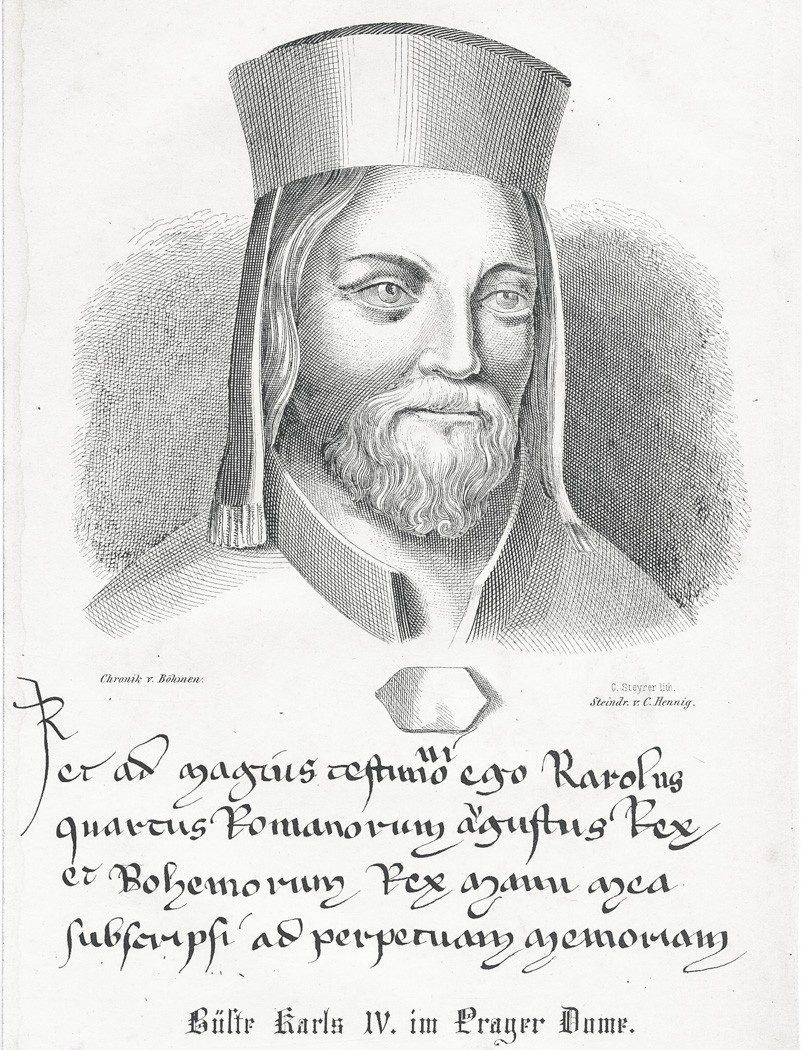 Chronik v. Böhmen.
C. Steyrer lith.
Steindr. v. C. Hennig.
et ad magius testimo ego Karolus
quartus Romanorum augustus Rex
et Bohemorum Rex manu mea
subscripsi ad perpetuam memoriam
Büste Karls IV. im Prager Dome.